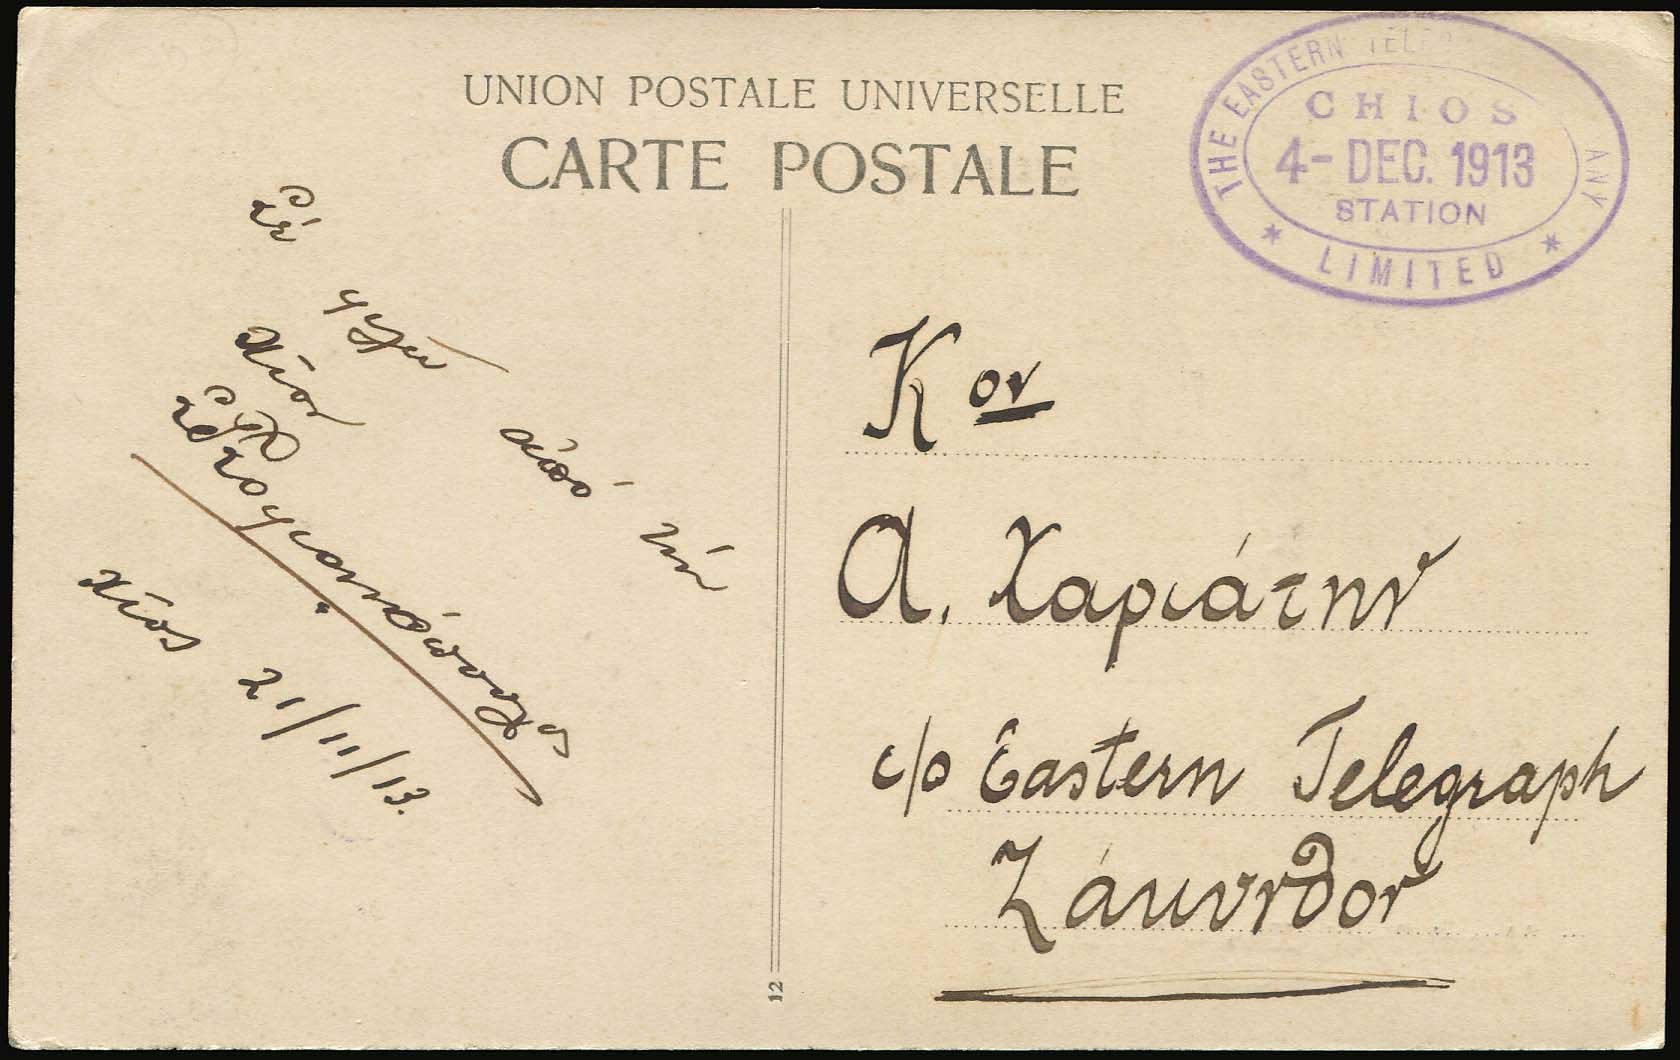 UNION POSTALE UNIVERSELLE
CARTE POSTALE
THE EASTERN TELE ANY
CHIOS
4- DEC. 1913
STATION
* LIMITED *
ἀπό τήν
Χίον
Χίος 21/11/13.
Κον
Α. Χαριάτην
c/o Eastern Telegraph
Ζάκυνθον
12